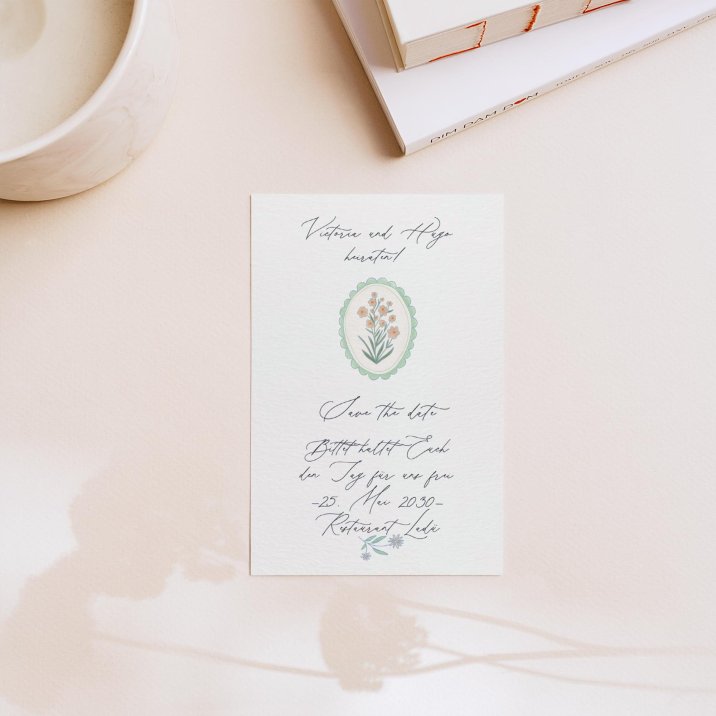 DIM DAM DOM
Victoria and Hugo
heiraten!
Save the date
Bittet haltet Euch
den Tag für uns frei
-25. Mai 2030-
Restaurant Ladü